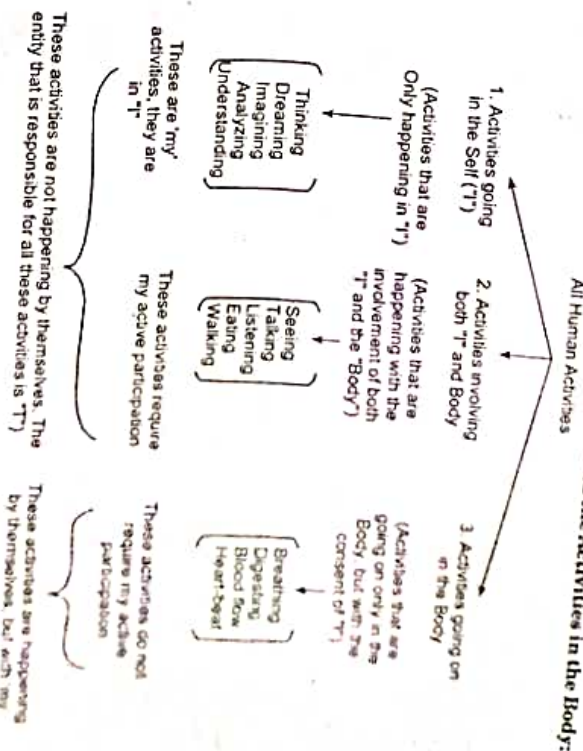 the Activities in the Body:
All Human Activities
1. Activities going
in the Self ("I")
(Activities that are
Only happening in "I")
Thinking
Dreaming
Imagining
Analyzing
Understanding
These are 'my'
activities, they are
in "I"
2. Activities involving
both "I" and Body
(Activities that are
happening with the
involvement of both
"I" and the "Body")
Seeing
Talking
Listening
Eating
Walking
These activities require
my active participation
These activities are not happening by themselves. The
entity that is responsible for all these activities is "I")
3. Activities going on
in the Body
(Activities that are
going on only in the
Body, but with the
consent of "I")
Breathing
Digesting
Blood flow
Heart-beat
These activities do not
require my active
participation
These activities are happening
by themselves, but with my